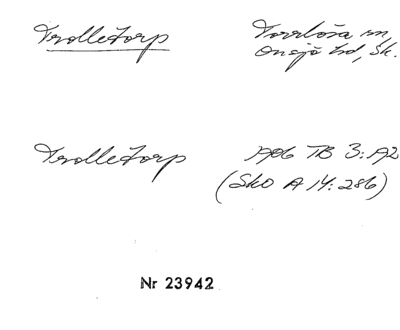 Trolletorp Torrlösa sn,
Onsjö hd, Sk.
Trolletorp 1906 TB 3:A2
(SkO A 14:286)
Nr 23942